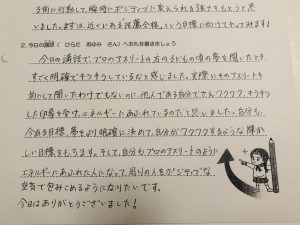 る前に行動して、瞬時にポジティブに変えられる強さをもとうと思
いました。まずは、近くにある"推薦合格"という目標に向けてやってみます!
2. 今日の講師（ ひらた あゆみ さん）へお礼を書きましょう
今日の講話で、プロのアスリートの方の子どもの頃の夢を聞いたとき、
すごく明確でキラキラしているなと感じました。実際にそのアスリートを
前にして聞いたわけでもないのに、他人である自分でさえワクワク、キラキラ
した印象を受け、エネルギーにあふれているのだと思いました。自分も、
今ある目標、夢をより明確に決めて、自分がワクワクするような輝か
しい目標をもちます。そして、自分もプロのアスリートのように
エネルギーにあふれた人になって、周りの人をポジティブな
空気で包みこめるようになりたいです。
今日はありがとうございました!